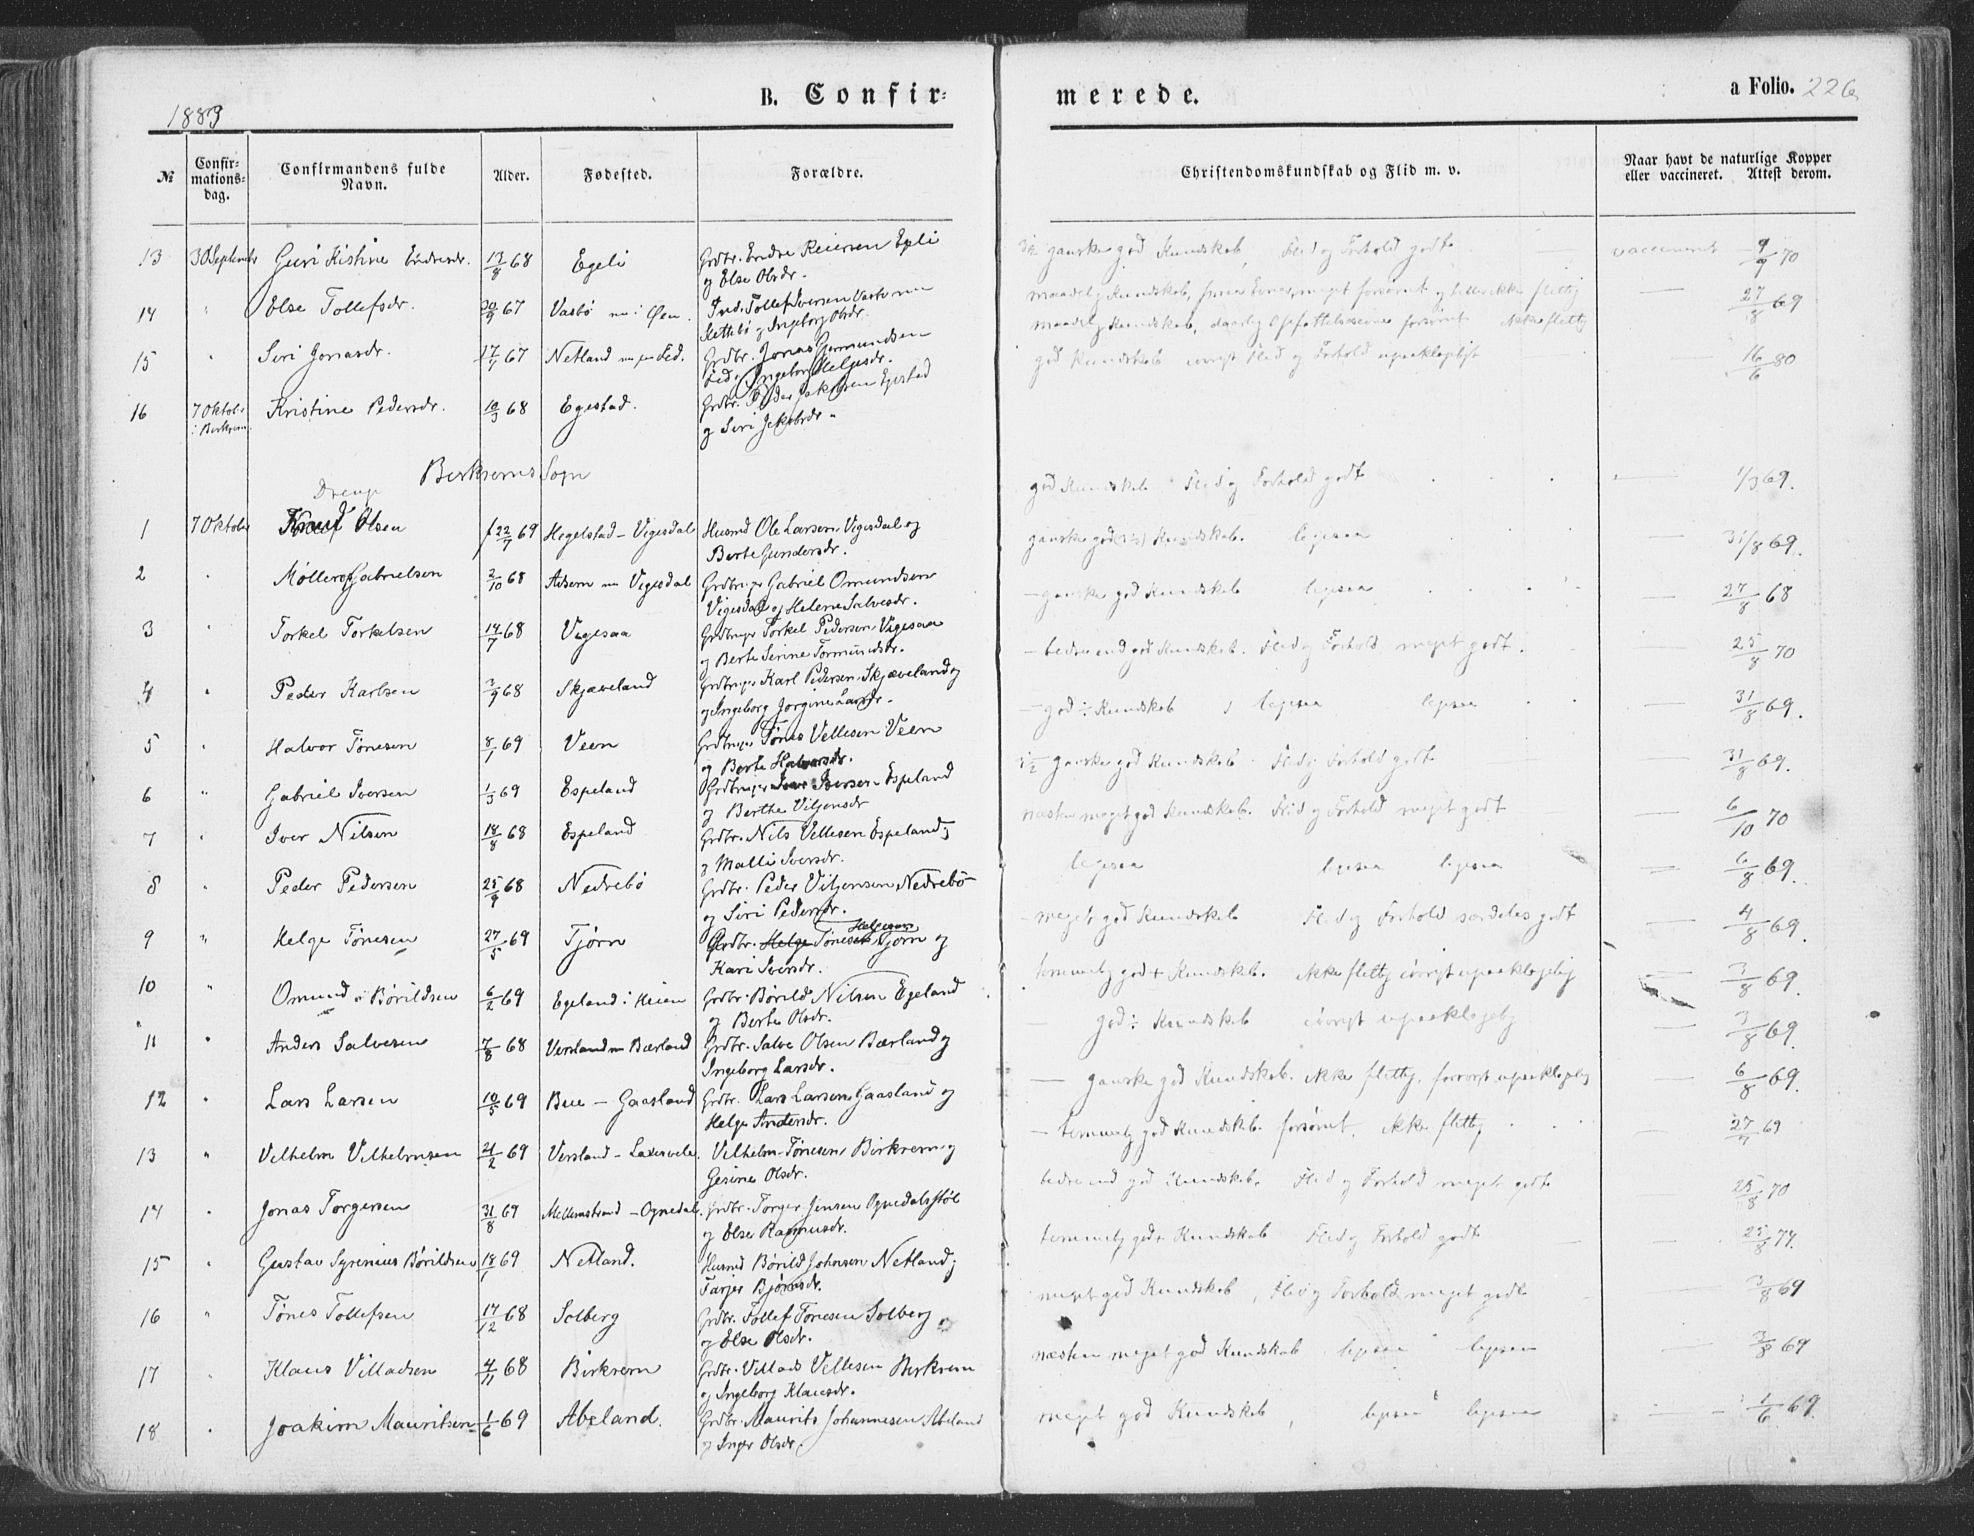 1883
B. Confir-
merede.
a Folio. 226
№
Confir-
mations-
dag.
Confirmandens fulde
Navn.
Alder.
Fødested.
Forældre.
Christendomskundskab og Flid m. v.
Naar havt de naturlige Kopper
eller vaccineret. Attest derom.
13 30 September Guri Kistine Endresdr. 13/8 68 Egeli Grdbr. Endre Reiersen Egli 3½ ganske god Kundskab, Flid og Forhold godt vaccineret 9/9 70
og Else Olsdr.
14 " Else Tollefsdr. 20/9 67 Vasbø nu i Øen. Ind. Tollef Iversen Vasbø nu maadelig Kundskab, forsømt og heller ikke flittig — 27/8 69
Kettebø og Ingeborg Olsdr. maadelig Kundskab, daarlig Opfattelsesevne forsømt ikke flittig
15 " Siri Jonasdr. 17/7 67 Netland nu paa Fed. Grdbr. Jonas Gjermundsen god Kundskab iøvrigt Flid og Forhold upaaklageligt — 16/6 80
Fed og Ingeborg Helgesdr.
16 7 Oktober Kristine Pedersdr. 10/3 68 Egestad. Grdbr. Peder Jakobsen Egestad
i Birkrem og Siri Jakobsdr.
Birkrems Sogn
Drenge
god Kundskab Flid og Forhold godt — 1/3 69.
1 7 Oktober Knud Olsen 22/7 69 Hegelstad - Vigesdal Husmd Ole Larsen Vigesdal og ganske god Kundskab. ligesaa — 31/8 69.
Berte Gundersdr.
2 " Møller Gabrielsen 2/10 68 Adsem nu Vigesdal Grdbruger Gabriel Omundsen — ganske god Kundskab ligesaa — 27/8 68
Vigesdal og Helene Salvesdr.
3 " Torkel Torkelsen 14/7 68 Vigesaa Grdbruger Torkel Pedersen Vigesaa — bedre end god Kundskab. Flid og Forhold meget godt. 25/8 70
og Berte Serine Tormundsdr.
4 " Peder Karlsen 3/9 68 Skjæveland Grdbruger Karl Pedersen Skjæveland og — god ÷ Kundskab, ligesaa ligesaa — 31/8 69.
og Ingeborg Jorgine Larsdr.
5 " Halvor Tønesen 8/1 69 Veen Grdbruger Tønes Vellesen Veen 3½ ganske god Kundskab. Flid og Forhold godt — 31/8 69.
og Berte Halvorsdr.
6 " Gabriel Iversen 1/3 69 Espeland Grdbruger Iver Iversen Espeland næsten meget god Kundskab. Flid og Forhold meget godt — 6/10 70
og Berthe Viljensdr
7 " Iver Nilsen 18/8 68 Espeland Grdbr. Nils Vellesen Espeland ligesaa ligesaa ligesaa — 6/8 69.
og Malli Iversdr.
8 " Peder Pedersen 25/9 68 Nedrebø Grdbr. Peder Viljensen Nedrebø — meget god Kundskab Flid og Forhold særdeles godt — 4/8 69.
og Siri Pedersdr.
Helgesen
9 " Helge Tønesen 27/5 69 Tjørn Grdbr. Helge Tønesen Tjørn og temmelig god + Kundskab. ikke flittig iøvrigt upaaklagelig — 3/8 69.
Kari Iversdr.
10 " Omund Børildsen 6/2 69 Egeland i Heien Grdbr. Børild Nilsen Egeland — god ÷ Kundskab iøvrigt upaaklagelig — 3/8 69.
og Berte Olsdr.
11 " Anders Salvesen 7/8 68 Versland nu Bærland Grdbr. Salve Olsen Bærland og — ganske god Kundskab. ikke flittig, forøvrigt upaaklagelig — 6/8 69.
Ingeborg Larsdr.
12 " Lars Larsen 10/5 69 Bue - Gaasland Grdbr. Lars Larsen Gaasland og — temmelig god Kundskab. forsømt. ikke flittig — 27/7 69
Helge Andersdr.
13 " Vilhelm Vilhelmsen 21/2 69 Versland - Laxesvele. Vilhelm Tønesen, Birkrem og bedre end god Kundskab. Flid og Forhold meget godt 25/8 70
Gesine Olsdr.
14 " Jonas Torgersen 31/8 69 Mellemstrand - Ognedal. Grdbr. Torger Jensen Ognedalsstøl temmelig god + Kundskab Flid og Forhold godt — 25/8 74.
og Else Rasmusdr.
15 " Gustav Syrenius Børildsen 18/1 69 Netland. Husmd Børild Johnsen Netland og meget god Kundskab, Flid og Forhold meget godt 3/8 69
Tarjer Bjørnsdr.
16 " Tønes Tollefsen 17/12 68 Solberg Grdbr. Tollef Tønesen Solberg næsten meget god Kundskab ligesaa ligesaa — 3/8 69
og Else Olsdr.
17 " Klaus Villadsen 4/11 68 Birkrem Grdbr. Villads Vellesen Birkrem meget god Kundskab, ligesaa ligesaa — 1/6 69.
og Ingeborg Klausdr.
18 " Joakim Mauritsen 1/6 69 Abeland. Grdbr. Maurits Johannesen Abeland
og Inger Olsdr.